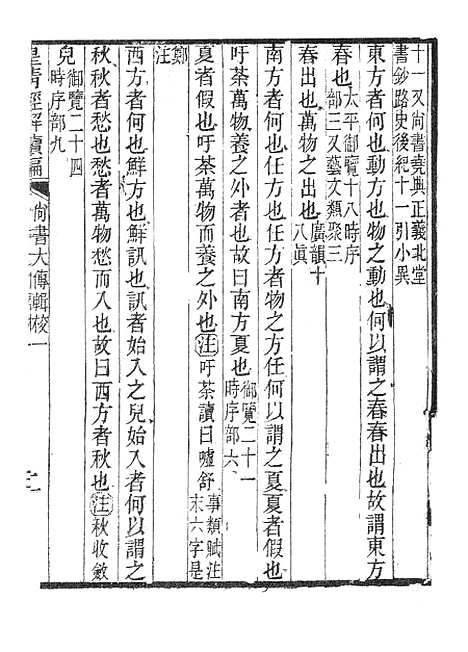 十一又尚書堯典正義北堂
書鈔路史後紀十一引小異
東方者何也動方也物之動也何以謂之春春出也故謂東方
春也太平御覽十八時序
部三又藝文類聚三
春出也萬物之出也廣韻十
八眞
南方者何也任方也任方者物之方任何以謂之夏夏者假也
吁荼萬物養之外者也故曰南方夏也御覽二十一
時序部六
夏者假也吁荼萬物而養之外也注吁荼讀曰噓舒事類賦注
末六字是
鄭
注
西方者何也鮮方也鮮訊也訊者始入之皃始入者何以謂之
秋秋者愁也愁者萬物愁而入也故曰西方者秋也注秋收斂
皃御覽二十四
時序部九
皇清經解續編
尚書大傳輯校一